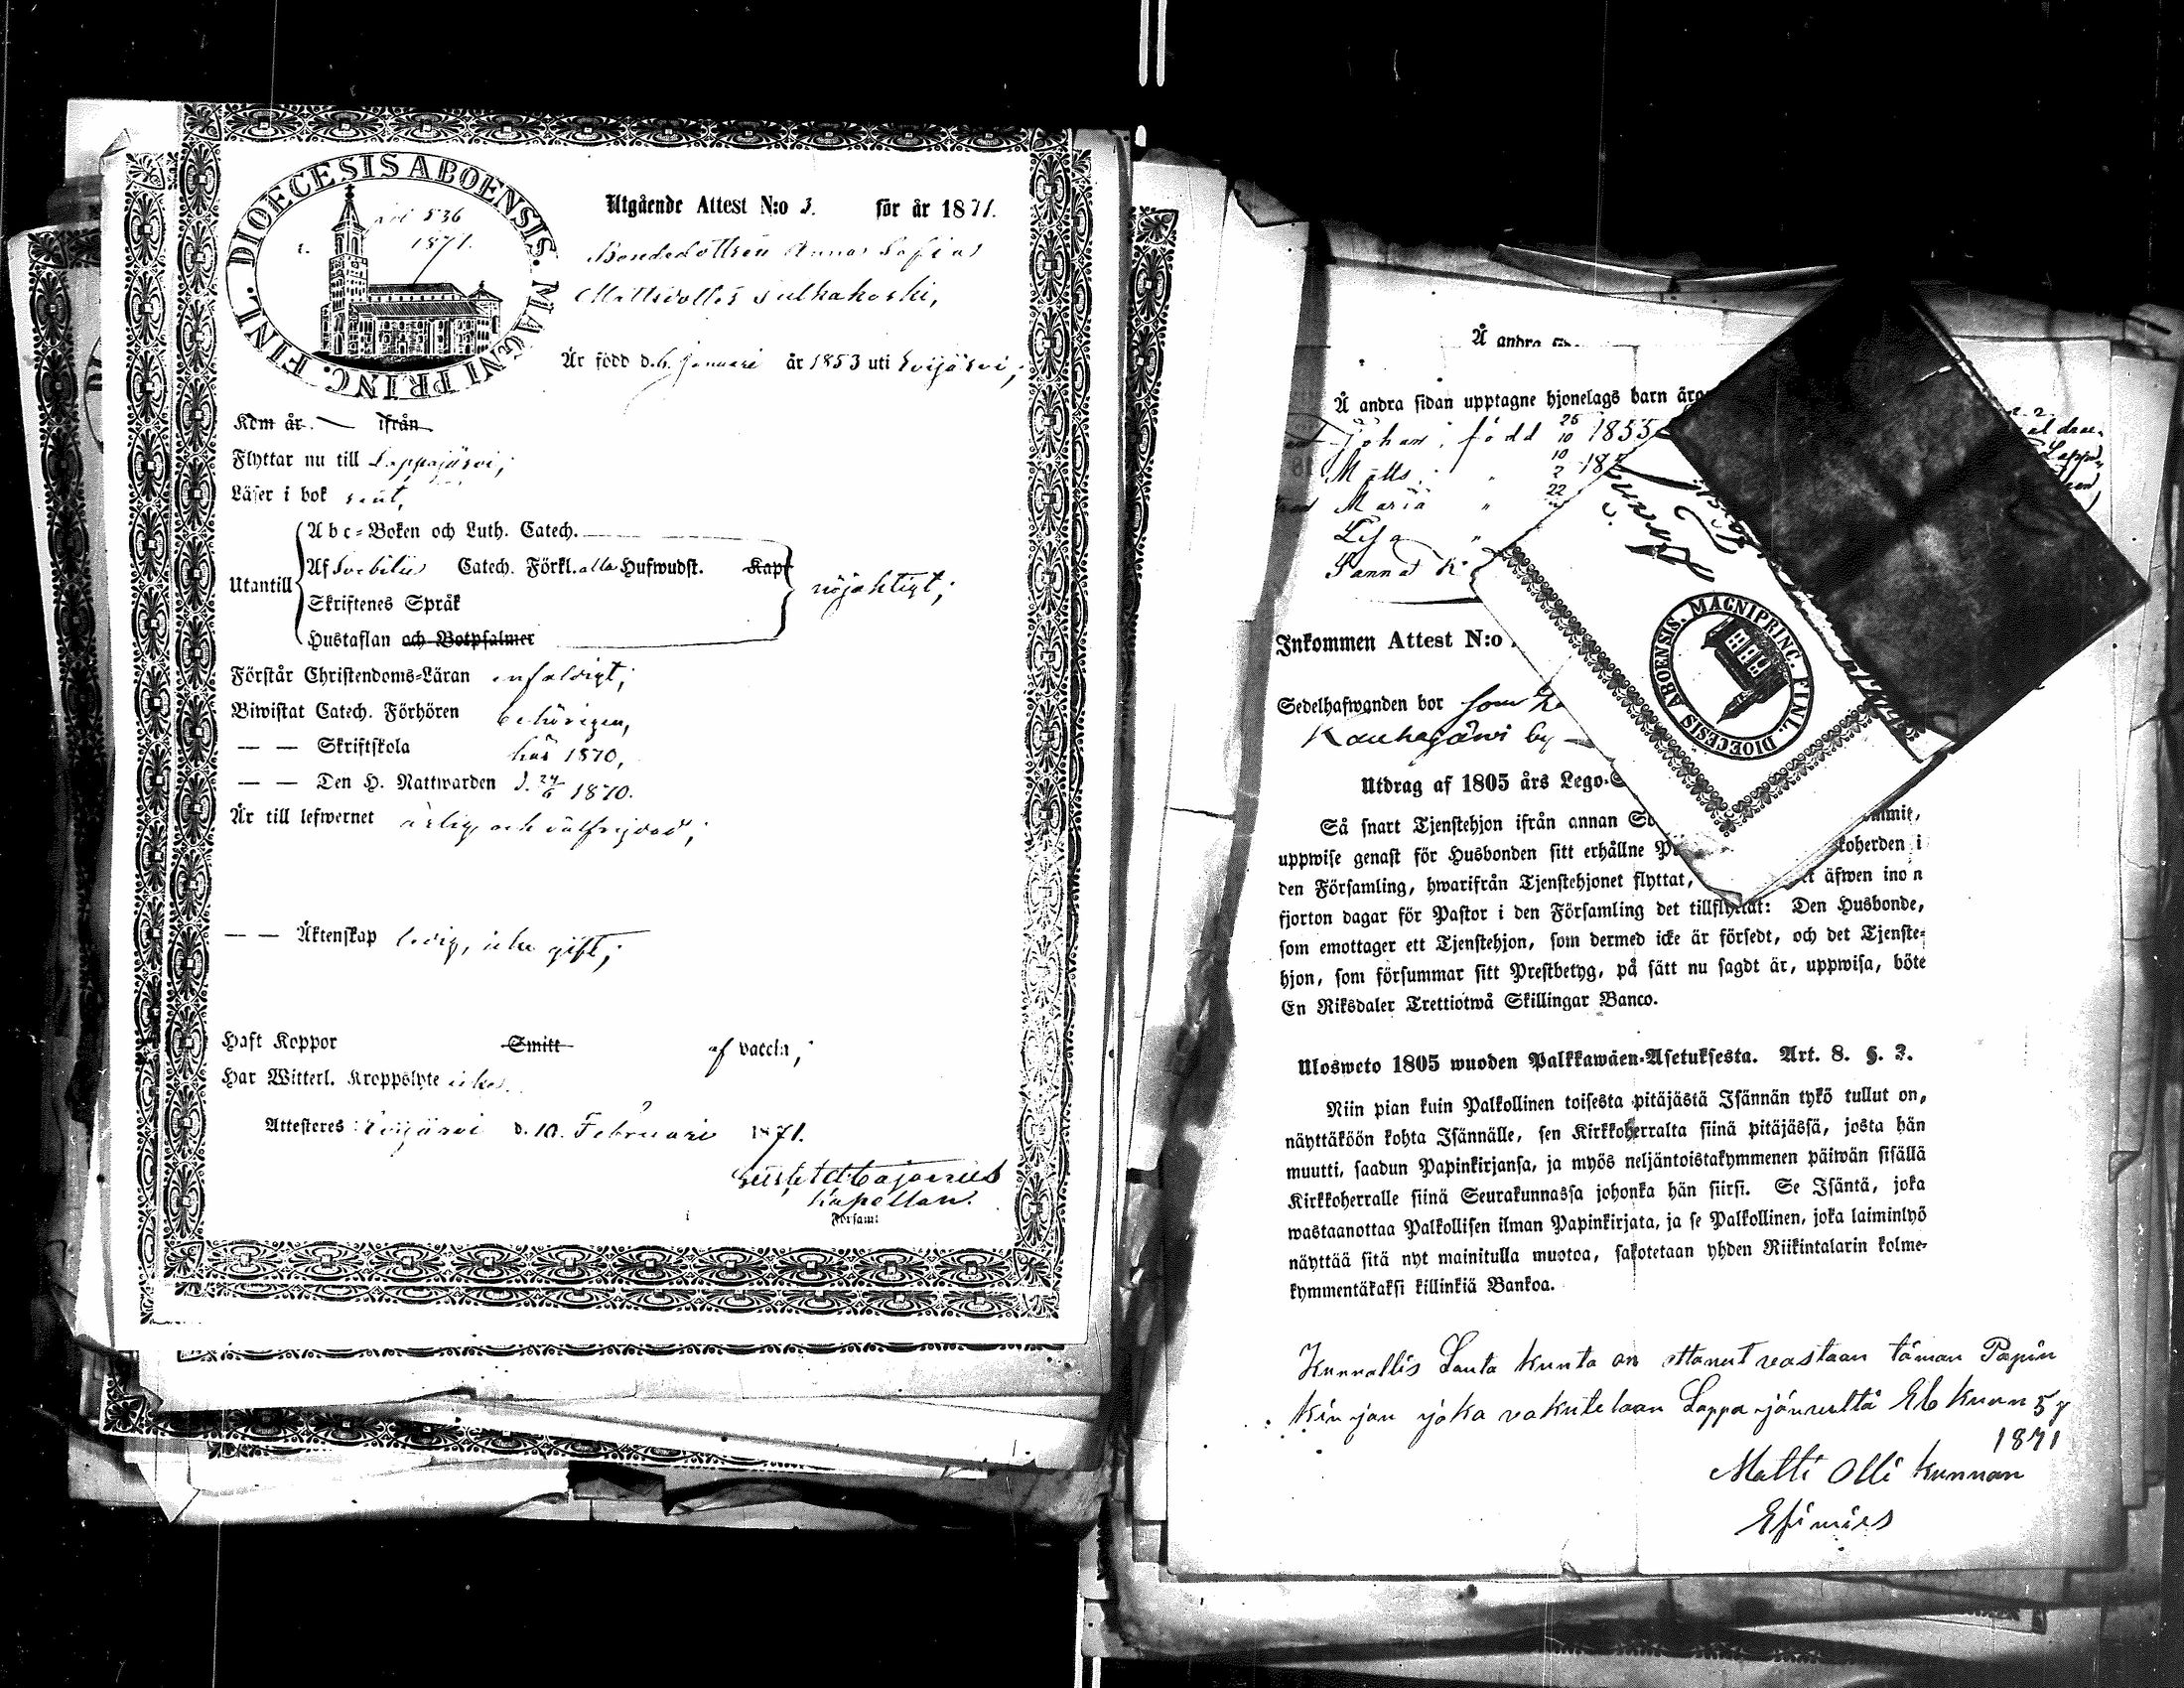 DIOECESIS ABOENSIS. MAGNI PRINC. FINL.
536
1871.
Utgående Attest N:o 3. för år 1871.
Bondedottren Anna Sofia
Mattsdotter Sulkakoski,
Är född d. 6 Januari år 1853 uti Evijärvi;
Kom år. — ifrån
Flyttar nu till Lappajärvi;
Läser i bok rent,
Utantill
Abc-Boken och Luth. Catech.
Af Svebelii Catech. Förkl. alla Hufwudst. Kap.
Skriftenes Språk
Hustaflan och Botpsalmer
nöjaktigt;
Förstår Christendoms-Läran enfaldigt;
Biwistat Catech. Förhören behörigen,
— — Skriftskola här 1870,
— — Den H. Nattwarden d. 24/6 1870.
Är till lefwernet ärlig och välfrejdad;
— — Äktenskap ledig, icke gift;
Haft Koppor Smitt af vaccin;
Har Witterl. Kroppslyte icke.
Attesteres: Evijärvi d. 10. Februari 1871.
Kapellan.
Församl
Å andra
Å andra sidan upptagne hjonelags barn äro
Johan, född 26/10 1855
Matts, " 10/2 18
Maria " 22
Lisa "
Sanna K
Inkommen Attest N:o
Sedelhafwanden bor som
Kauhajärvi by
DIOECESIS ABOENSIS. MAGNI PRINC. FINL.
Utdrag af 1805 års Lego-S
Så snart Tjenstehjon ifrån annan So mmit,
uppwise genast för Husbonden sitt erhållne P koherden i
den Församling, hwarifrån Tjenstehjonet flyttat, äfwen inon
fjorton dagar för Pastor i den Församling det tillflyttat: Den Husbonde,
som emottager ett Tjenstehjon, som dermed icke är försedt, och det Tjenste-
hjon, som försummar sitt Prestbetyg, på sätt nu sagdt är, uppwisa, böte
En Riksdaler Trettiotwå Skillingar Banco.
Ulosweto 1805 wuoden Palkkawäen-Asetuksesta. Art. 8. §. 3.
Niin pian kuin Palkollinen toisesta pitäjästä Isännän tykö tullut on,
näyttäköön kohta Isännälle, sen Kirkkoherralta siinä pitäjässä, josta hän
muutti, saadun Papinkirjansa, ja myös neljäntoistakymmenen päiwän sisällä
Kirkkoherralle siinä Seurakunnassa johonka hän siirsi. Se Isäntä, joka
wastaanottaa Palkollisen ilman Papinkirjata, ja se Palkollinen, joka laiminlyö
näyttää sitä nyt mainitulla muotoa, sakotetaan yhden Riikintalarin kolme-
kymmentäkaksi killinkiä Bankoa.
Kunnallis Lauta kunta on ottanut vastaan täman Papin
kirjan joka vakutetaan Lappajärveltä Elo kuun 5 p
1871
Matti Olli kunnan
Esimies